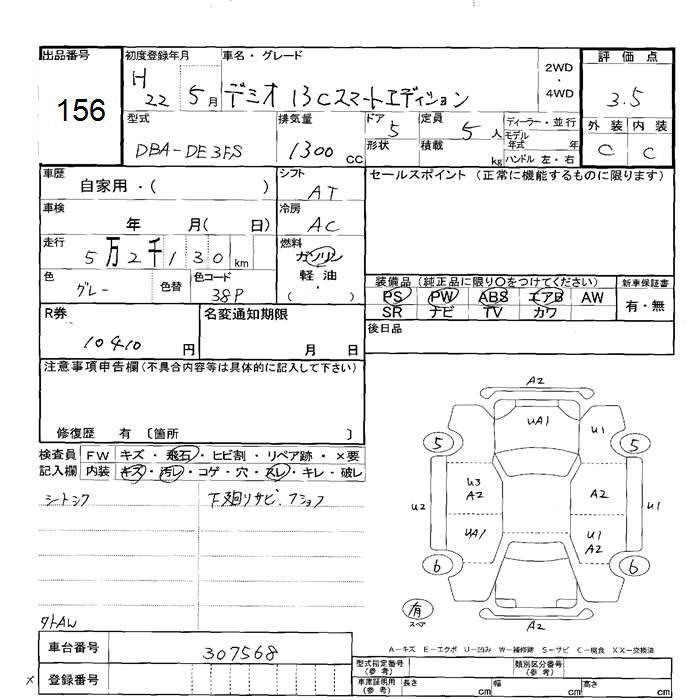 出品番号 初度登録年月 車名・グレード 評価点
156
H22 5月 デミオ 13Cスマートエディション 2WD・4WD 3.5
型式 排気量 ドア 5 定員 5人 ディーラー・並行 外装 内装
DBA-DE3FS 1300cc 形状 積載 kg モデル年式 年 C C
ハンドル 左・右
車歴 自家用・( ) シフト AT セールスポイント(正常に機能するものに限ります)
車検 年 月( 日) 冷房 AC
走行 5万2千130km 燃料 ガソリン
軽油
・( )
色 グレー 色替 色コード 38P
装備品(純正品に限り○をつけてください) 新車保証書
PS PW ABS エアB AW 有・無
SR ナビ TV カワ
R券 10410円 名変通知期限 月 日 後日品
注意事項申告欄(不具合内容等は具体的に記入して下さい)
修復歴 有 〔箇所 〕
検査員 FW キズ・飛石・ヒビ割・リペア跡・×要
記入欄 内装 キズ・汚レ・コゲ・穴・スレ・キレ・破レ
下廻リサビ.
A2
UA1
5 U1 5
U3 A2 A2
U2 U1
UA1 U1 A2
6 6
有
スペア
A2
A-キズ E-エクボ U-凹み W-補修跡 S-サビ C-腐食 XX-交換済
外AW
車台番号 307568
× 登録番号
型式指定番号(参考) 類別区分番号(参考)
車庫証明用(参考) 長さ cm 幅 cm 高さ cm